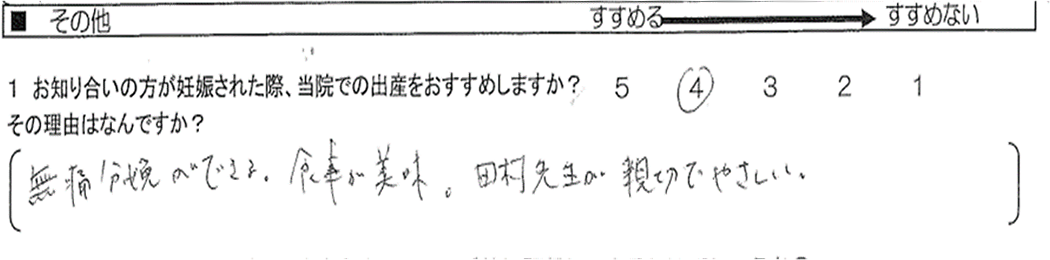 ■ その他 すすめる → すすめない
1 お知り合いの方が妊娠された際、当院での出産をおすすめしますか? 5 4 3 2 1
その理由はなんですか?
無痛分娩ができる。食事が美味。田村先生が親切でやさしい。